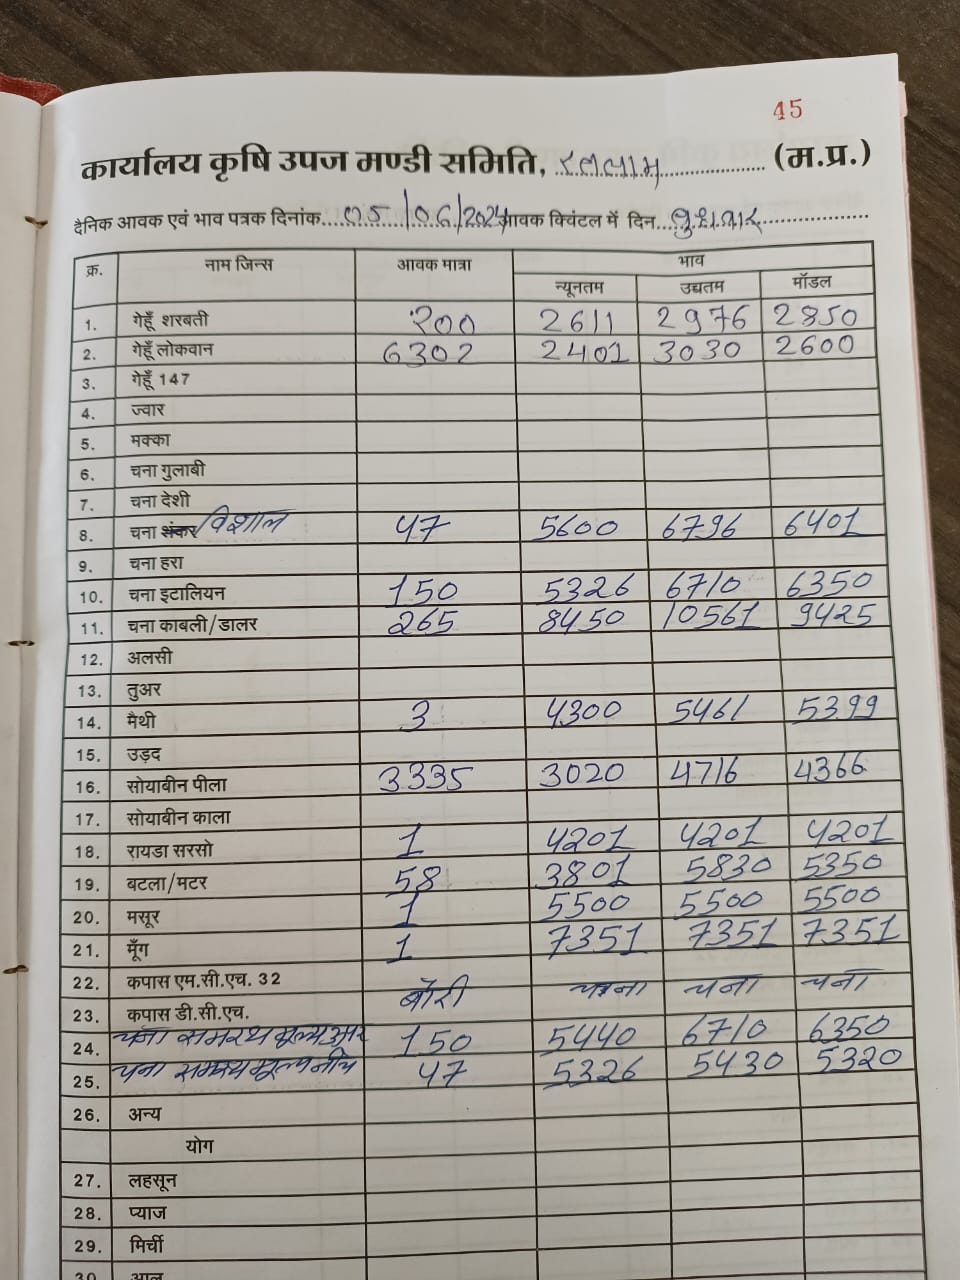 45
कार्यालय कृषि उपज मण्डी समिति, रतलाम (म.प्र.)
दैनिक आवक एवं भाव पत्रक दिनांक 05/06/2024 आवक क्विंटल में दिन बुधवार
क्र. नाम जिन्स आवक मात्रा भाव
न्यूनतम उच्चतम मॉडल
1. गेहूँ शरबती 200 2611 2976 2850
2. गेहूँ लोकवान 6302 2401 3030 2600
3. गेहूँ 147
4. ज्वार
5. मक्का
6. चना गुलाबी
7. चना देशी
8. चना शंकर/विशाल 47 5600 6796 6401
9. चना हरा
10. चना इटालियन 150 5326 6710 6350
11. चना काबली/डालर 265 8450 10561 9425
12. अलसी
13. तुअर
14. मैथी 3 4300 5461 5399
15. उड़द
16. सोयाबीन पीला 3335 3020 4716 4366
17. सोयाबीन काला
18. रायडा सरसो 1 4201 4201 4201
19. बटला/मटर 58 3801 5830 5350
20. मसूर 1 5500 5500 5500
21. मूँग 1 7351 7351 7351
22. कपास एम.सी.एच. 32
23. कपास डी.सी.एच. बोरी चना चना चना
24. चना 150 5440 6710 6350
25. चना 47 5326 5430 5320
26. अन्य
योग
27. लहसून
28. प्याज
29. मिर्ची
30. आलू